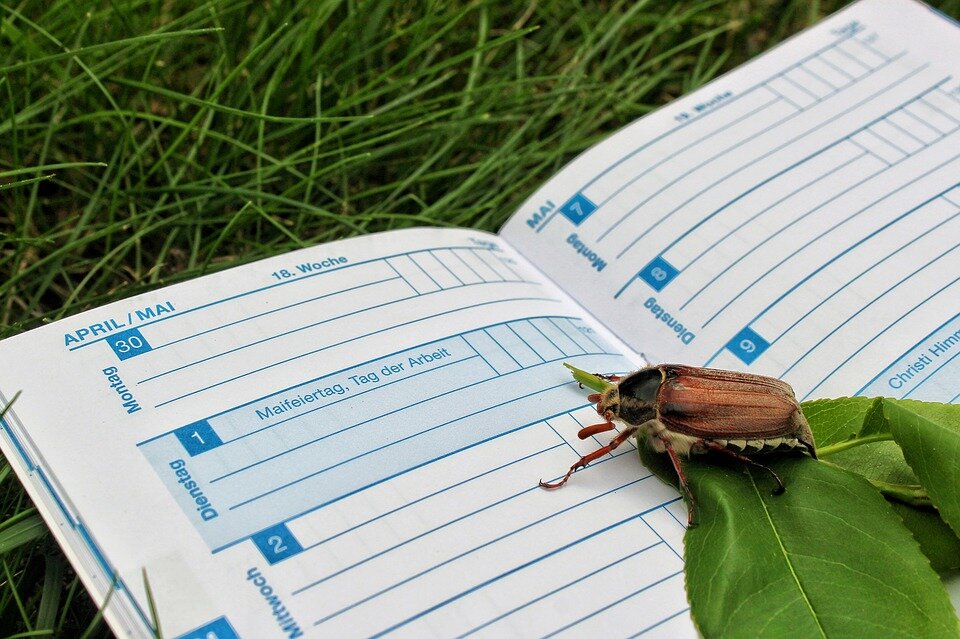 APRIL/MAI
18. Woche
30
Montag
Maifeiertag, Tag der Arbeit
1
Dienstag
2
Mittwoch
19. Woche
MAI
7
Montag
8
Dienstag
9
Christi Himm